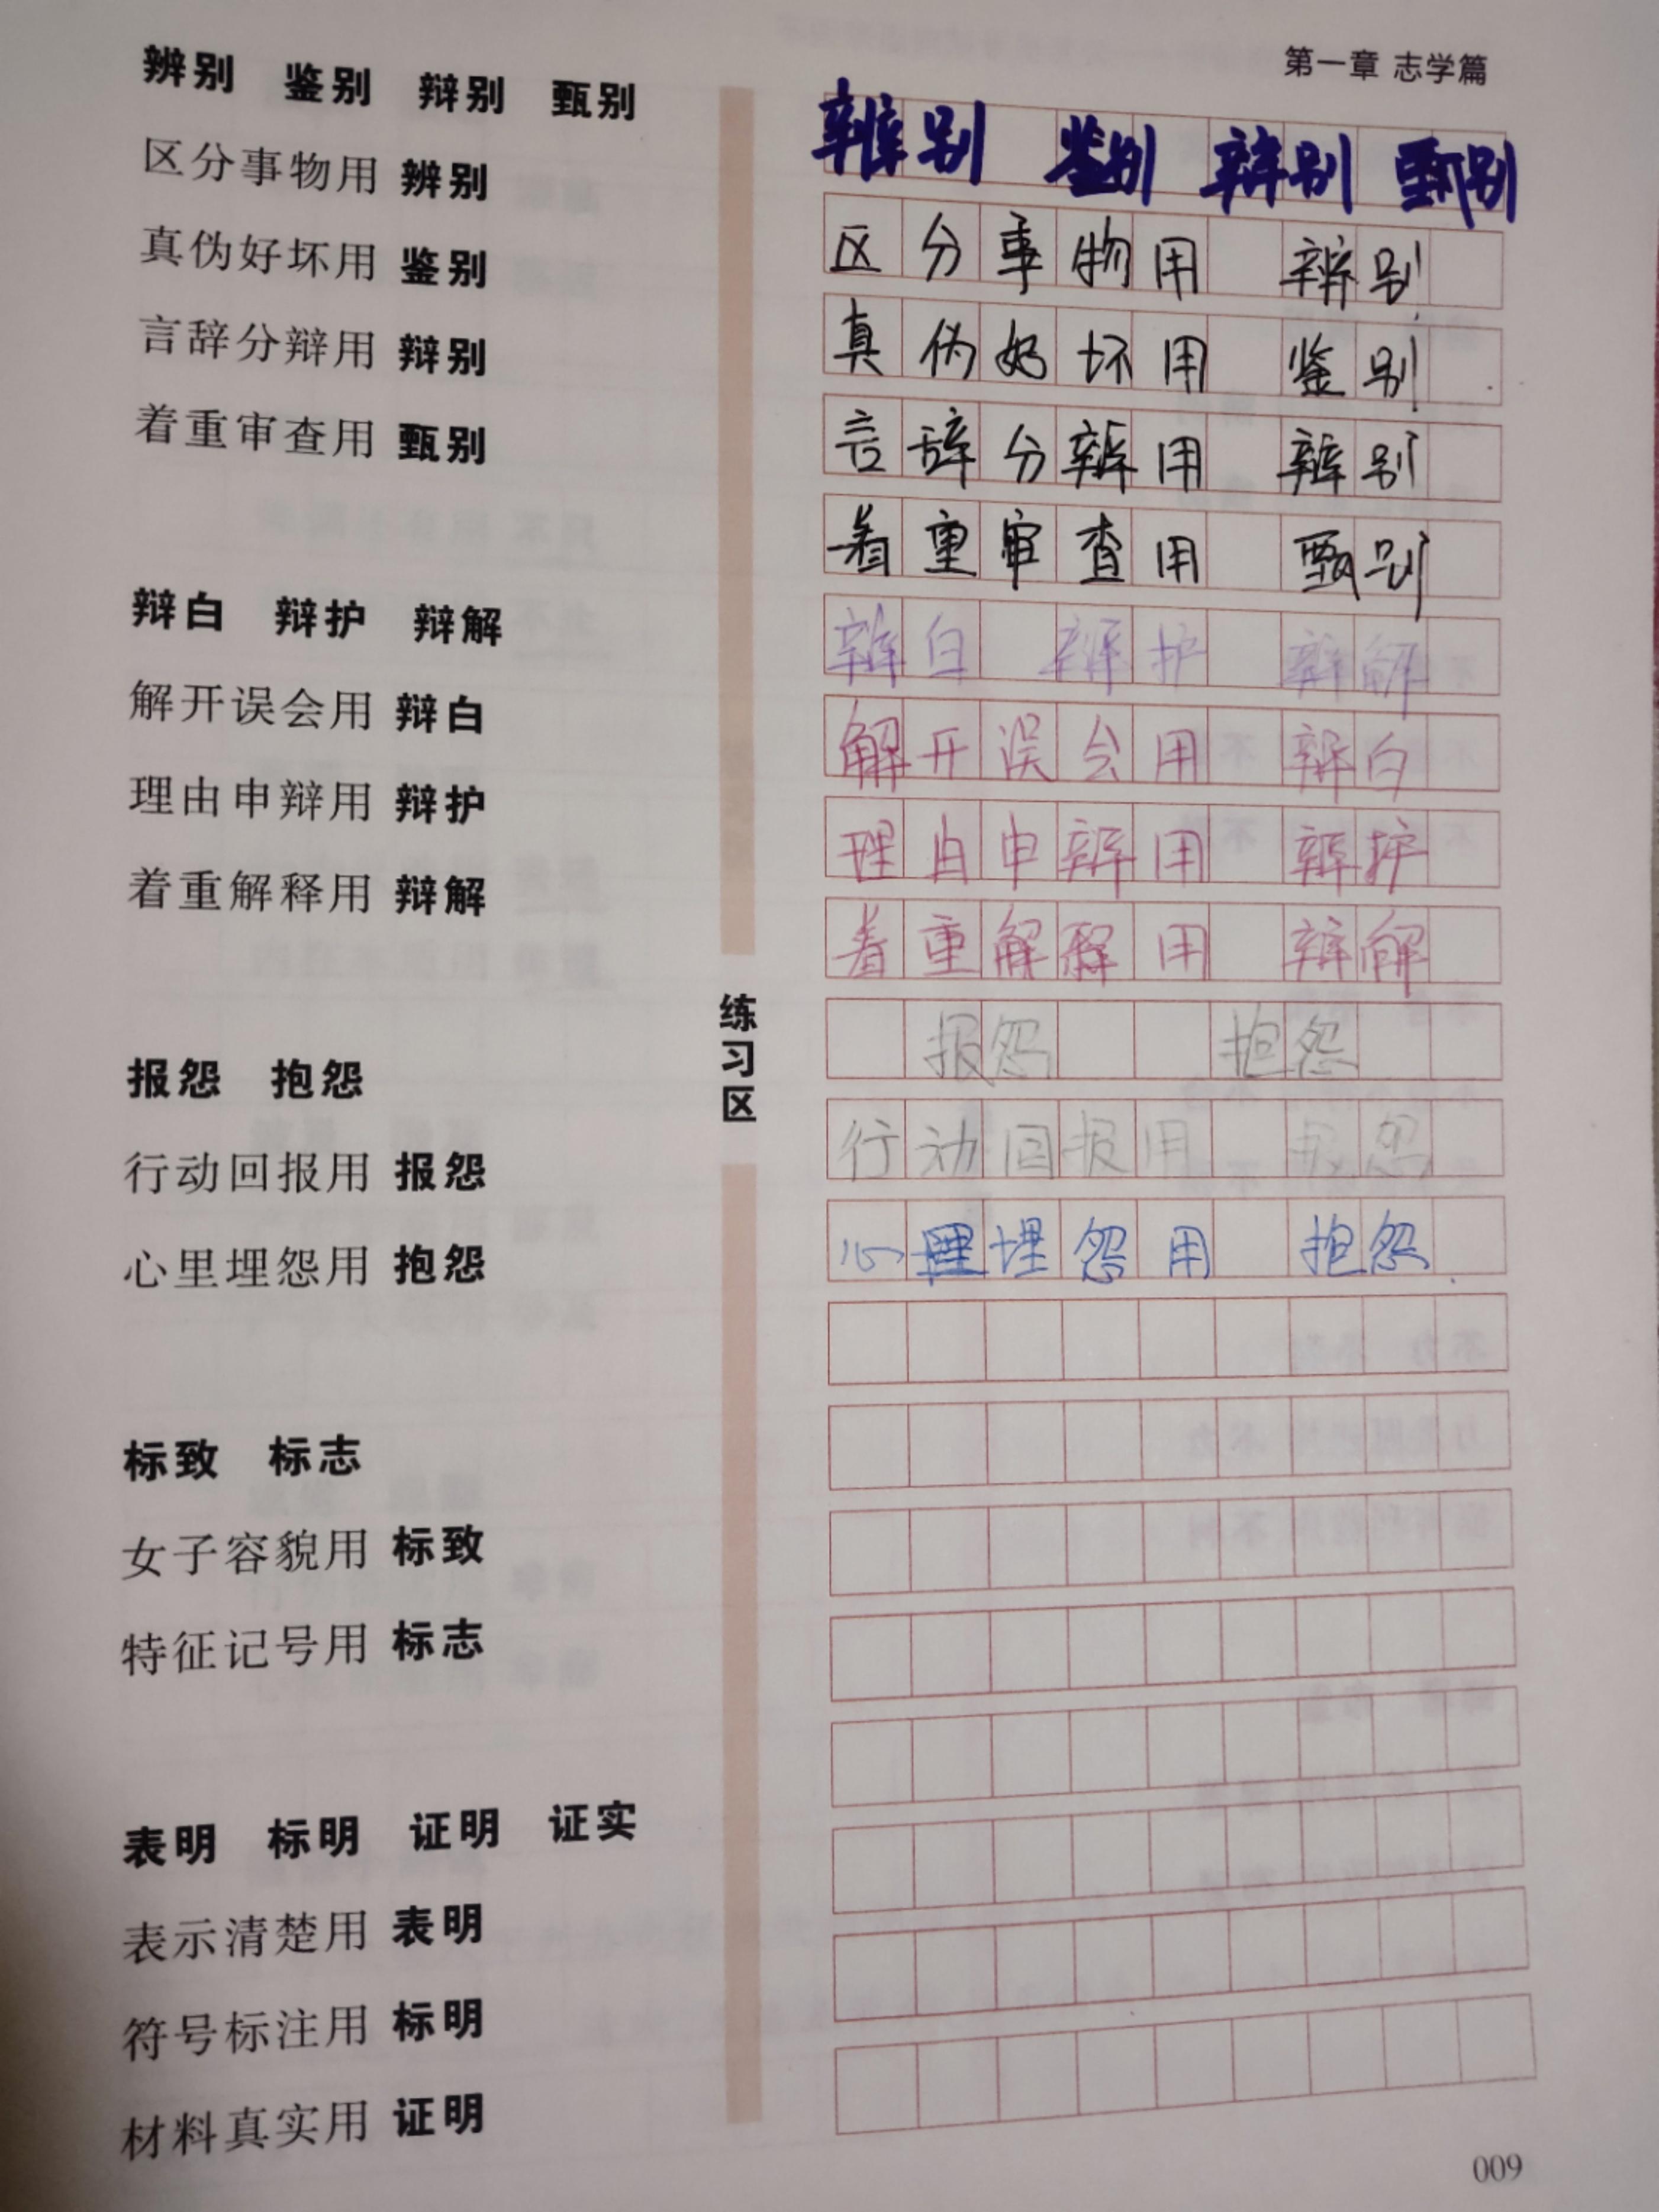 第一章 志学篇
辨别 鉴别 辩别 甄别
区分事物用 辨别
真伪好坏用 鉴别
言辞分辩用 辩别
着重审查用 甄别
辩白 辩护 辩解
解开误会用 辩白
理由申辩用 辩护
着重解释用 辩解
报怨 抱怨
行动回报用 报怨
心里埋怨用 抱怨
标致 标志
女子容貌用 标致
特征记号用 标志
表明 标明 证明 证实
表示清楚用 表明
符号标注用 标明
材料真实用 证明
练习区
辨别 鉴别 辨别 甄别
区分事物用 辨别
真伪好坏用 鉴别
言辞分辨用 辨别
着重审查用 甄别
辨白 辨护 辨解
解开误会用 辨白
理由申辨用 辨护
着重解释用 辨解
报怨 抱怨
行动回报用 报怨
心理埋怨用 抱怨
009